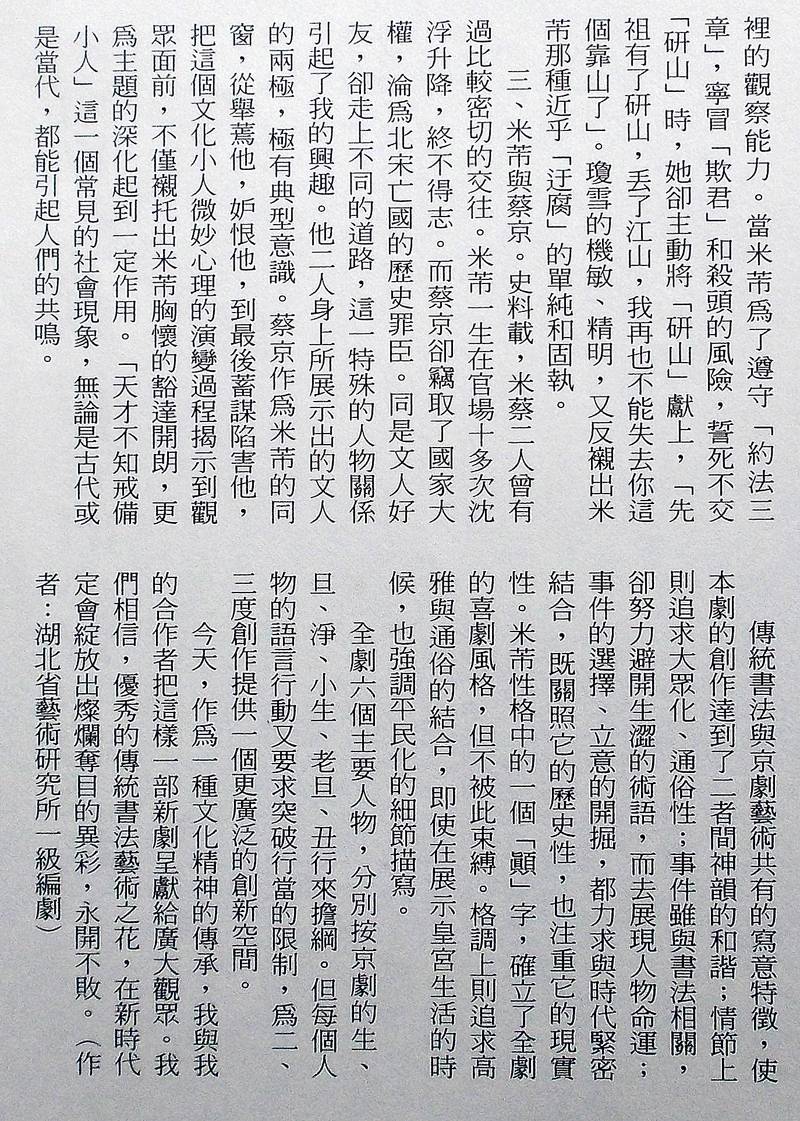 裡的觀察能力。當米芾爲了遵守「約法三
章」，寧冒「欺君」和殺頭的風險，誓死不交
「硏山」時，她卻主動將「硏山」獻上，「先
祖有了硏山，丟了江山，我再也不能失去你這
個靠山了」。瓊雪的機敏、精明，又反襯出米
芾那種近乎「迂腐」的單純和固執。
三、米芾與蔡京。史料載，米蔡二人曾有
過比較密切的交往。米芾一生在官場十多次沈
浮升降，終不得志。而蔡京卻竊取了國家大
權，淪爲北宋亡國的歷史罪臣。同是文人好
友，卻走上不同的道路，這一特殊的人物關係
引起了我的興趣。他二人身上所展示出的文人
的兩極，極有典型意識。蔡京作爲米芾的同
窗，從舉薦他，妒恨他，到最後蓄謀陷害他，
把這個文化小人微妙心理的演變過程揭示到觀
眾面前，不僅襯托出米芾胸懷的豁達開朗，更
爲主題的深化起到一定作用。「天才不知戒備
小人」這一個常見的社會現象，無論是古代或
是當代，都能引起人們的共鳴。
傳統書法與京劇藝術共有的寫意特徵，使
本劇的創作達到了二者間神韻的和諧；情節上
則追求大眾化、通俗性；事件雖與書法相關，
卻努力避開生澀的術語，而去展現人物命運；
事件的選擇、立意的開掘，都力求與時代緊密
結合，既關照它的歷史性，也注重它的現實
性。米芾性格中的一個「顚」字，確立了全劇
的喜劇風格，但不被此束縛。格調上則追求高
雅與通俗的結合，即使在展示皇宮生活的時
候，也強調平民化的細節描寫。
全劇六個主要人物，分別按京劇的生、
旦、淨、小生、老旦、丑行來擔綱。但每個人
物的語言行動又要求突破行當的限制，爲二、
三度創作提供一個更廣泛的創新空間。
今天，作爲一種文化精神的傳承，我與我
的合作者把這樣一部新劇呈獻給廣大觀眾。我
們相信，優秀的傳統書法藝術之花，在新時代
定會綻放出燦爛奪目的異彩，永開不敗。（作
者：湖北省藝術硏究所一級編劇）